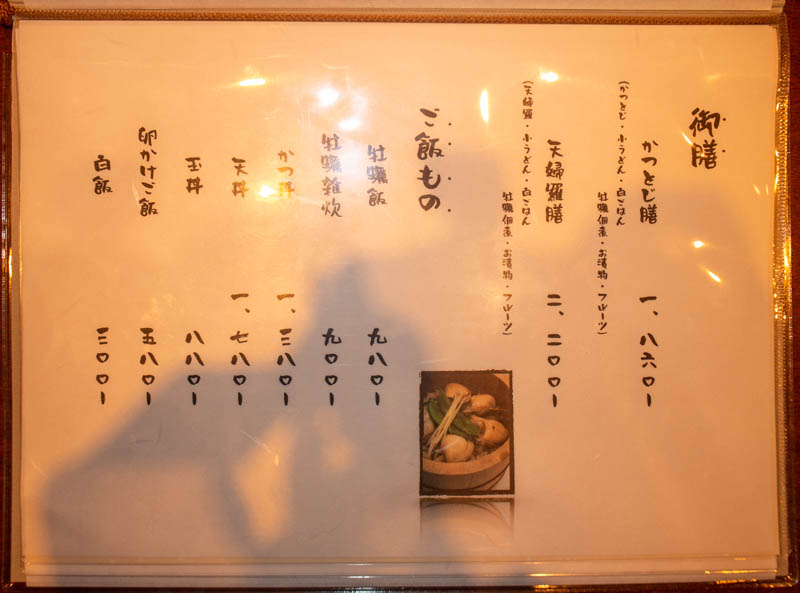 御膳
かつとじ膳 一、八六〇ー
(かつとじ・小うどん・白ごはん
牡蠣佃煮・お漬物・フルーツ)
天婦羅膳 二、二〇〇ー
(天婦羅・小うどん・白ごはん
牡蠣佃煮・お漬物・フルーツ)
ご飯もの
牡蠣飯 九八〇ー
牡蠣雑炊 九〇〇ー
かつ丼 一、三八〇ー
天丼 一、七八〇ー
玉丼 八八〇ー
卵かけご飯 五八〇ー
白飯 三〇〇ー